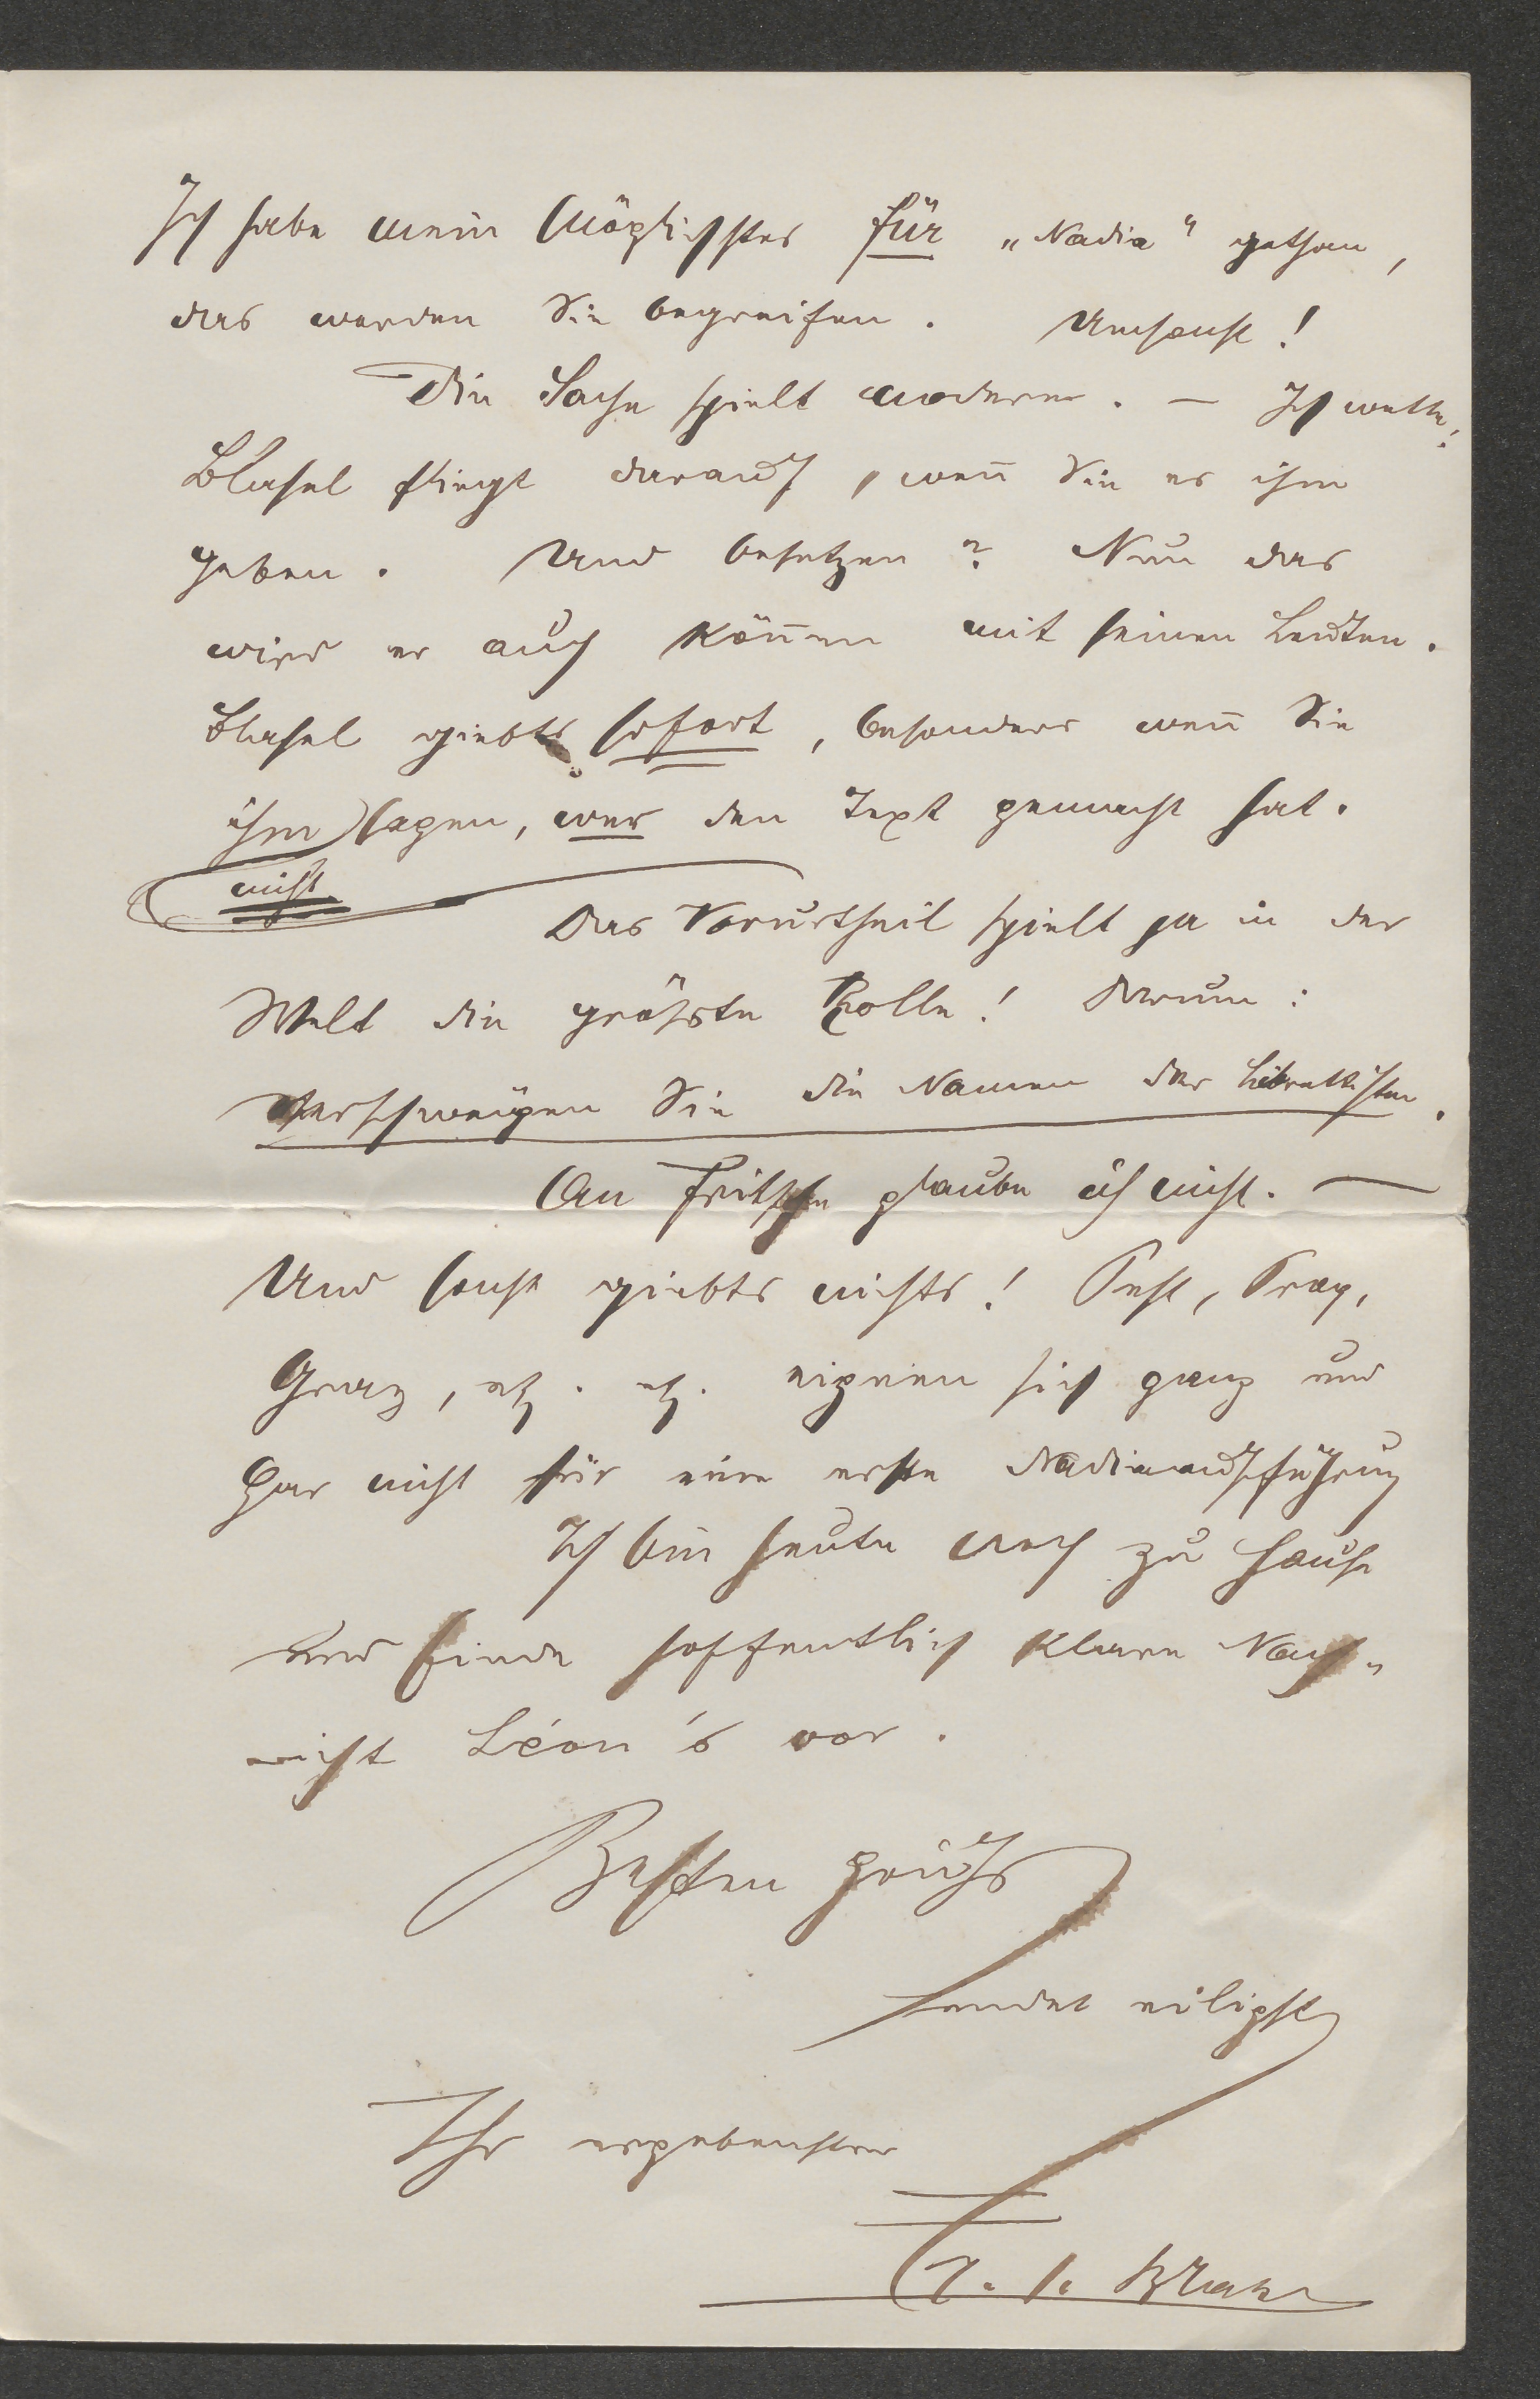 Ich habe mein Möglichstes für „Nadia“ gethan,
das werden Sie begreifen. Umsonst!
Die Sache spielt modern. — Ich wette,
Blasel fliegt darauf, weñ Sie es ihm
geben. Und besetzen? Nun das
wird er auch köñen mit seinen Leuten.
Blasel giebts sofort, besonders weñ Sie
ihm sagen, wer den Text gemacht hat.
nicht
Das Vorurtheil spielt ja in der
Welt die größte Rolle! Darum:
verschweigen Sie die Namen der Librettisten.
An Fritzsche glaube ich nicht. —
Und sonst giebts nichts! Pest, Prag,
Graz, etz. etz. eignen sich ganz und
gar nicht für eine erste Nadiaaufführung
Ich bin heute noch zu Hause
und finde hoffentlich klare Nach-
richt Léon's vor.
Besten Gruß
sendet eiligst
Ihr ergebenster